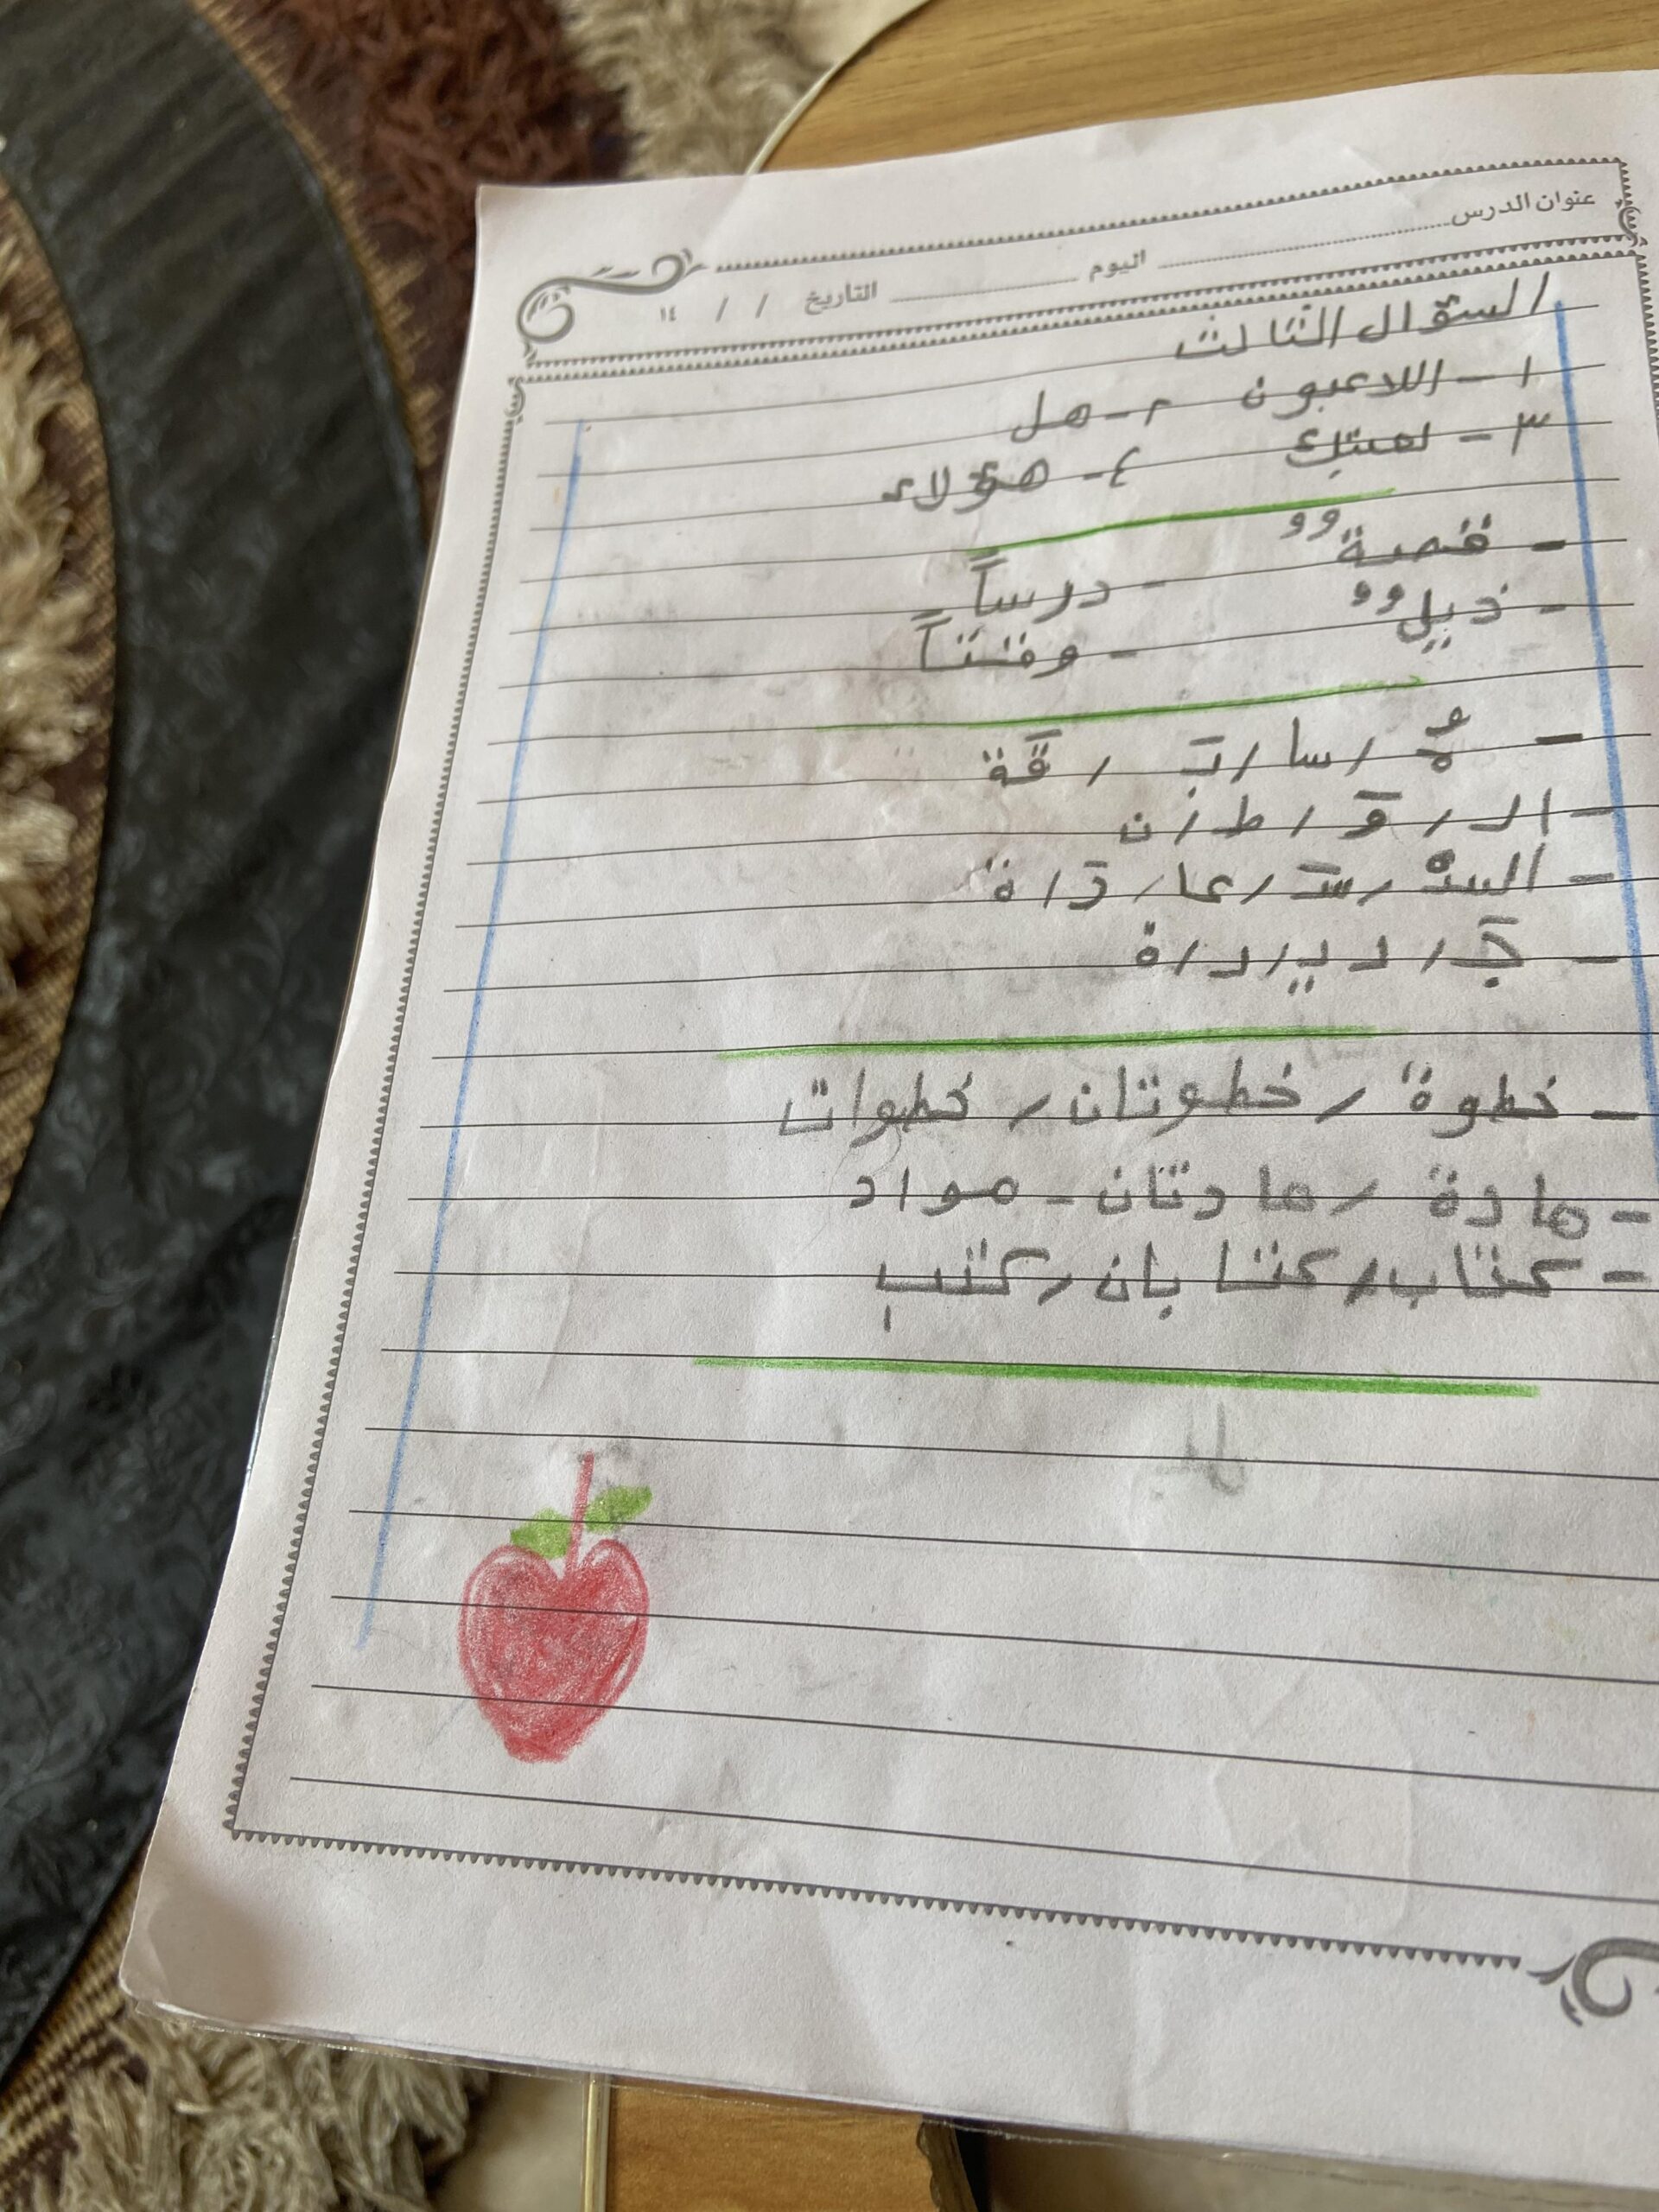 عنوان الدرس اليوم التاريخ / / ١٤
السؤال الثالث
١ - اللاعبون ٢ - هل
٣ - لعبتك ٤ - هؤلاء
- قصةٌ - درساً
- ذيلٌ - وقتاً
- مُ / سا / بَ / قَة
- الـ / وَ / طـ / ن
- السـْ / سَـ / عا / دَ / ة
- جَـ / د يـ / د / ة
- خطوة / خطوتان / خطوات
- مادة / مادتان - مواد
- كتاب / كتابان / كتب